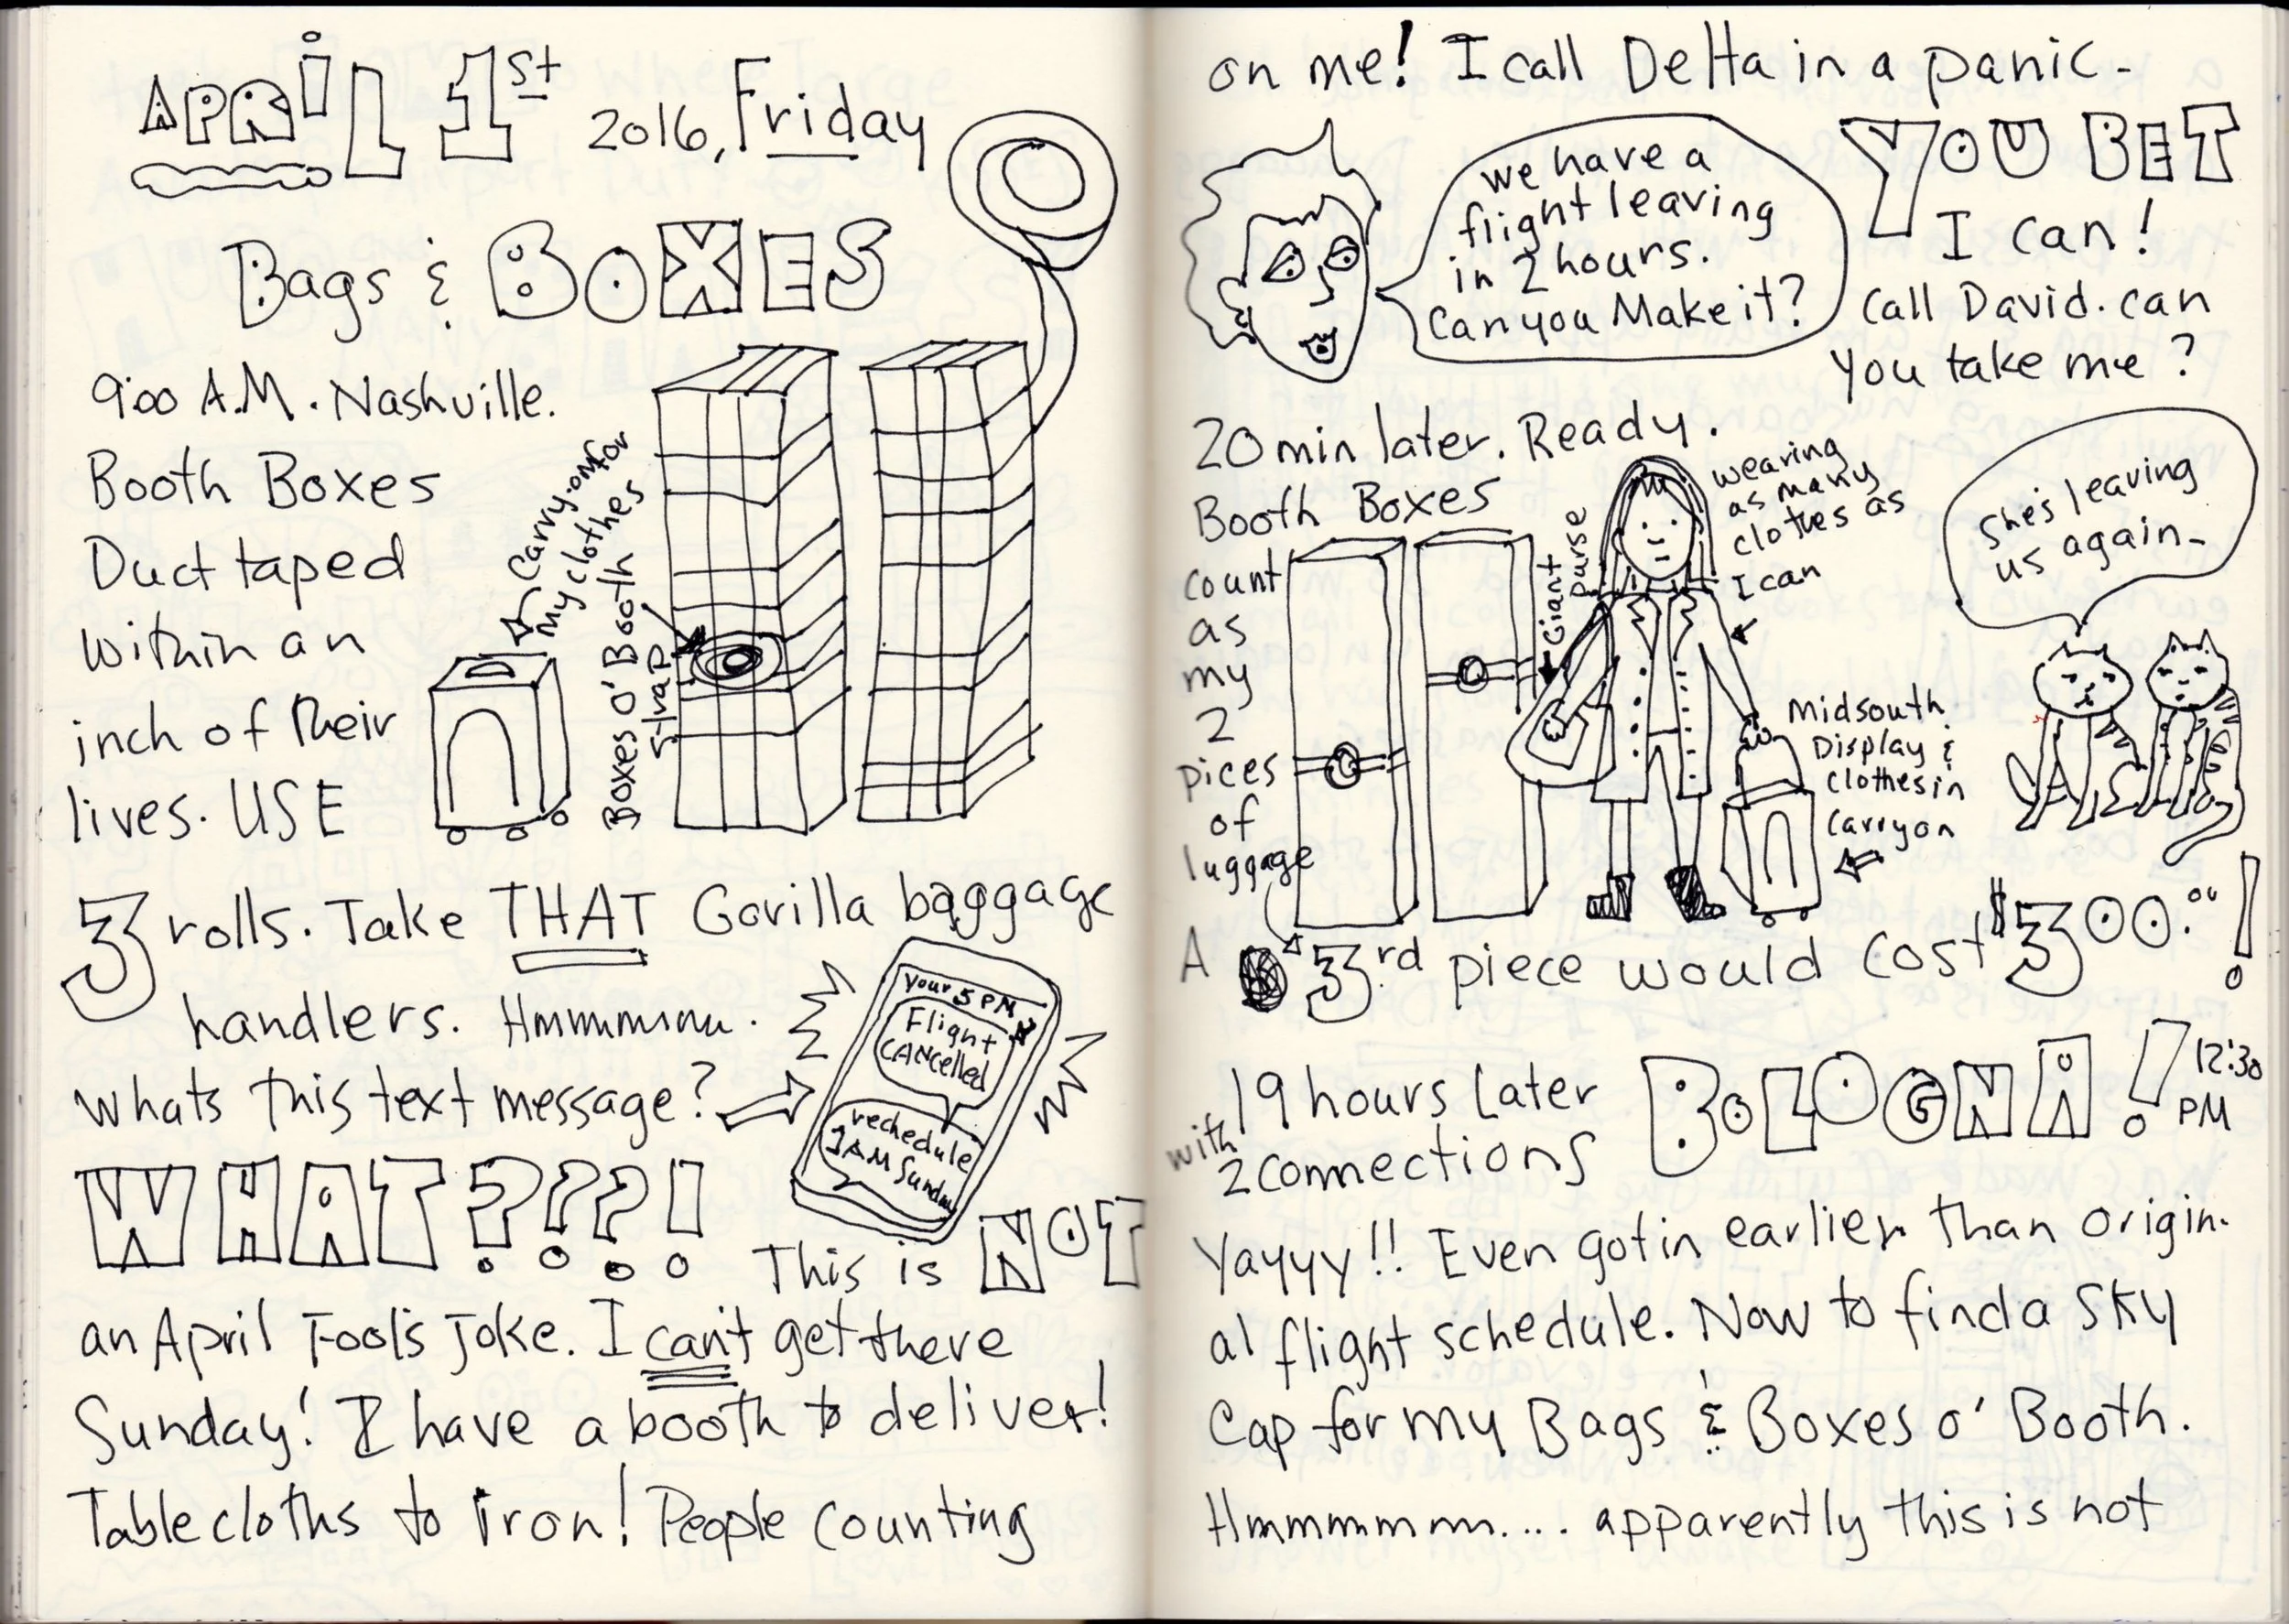 APRIL 1st 2016, Friday
Bags & BOXES
9:00 A.M. Nashville.
Booth Boxes
Duct taped
within an
inch of their
lives. USE
Carry-on for
my clothes
Boxes O' Booth
strap
3 rolls. Take THAT Gorilla baggage
handlers. Hmmmmmm.
whats this text message?
your 5 PM
Flight
CANCelled
rechedule
1 AM Sunday
WHAT???! This is NOT
an April Fool's Joke. I can't get there
Sunday! I have a booth to deliver!
Tablecloths to iron! People counting
on me! I call Delta in a panic-
we have a
flight leaving
in 2 hours.
Can you Make it?
YOU BET
I can!
Call David. can
you take me?
20 min later. Ready.
Booth Boxes
count
as
my
2
pices
of
luggage
Giant
purse
wearing
as many
clothes as
I can
She's leaving
us again-
Midsouth
Display &
Clothes in
Carryon
A 3rd piece would cost $300.00!
19 hours Later
with 2 connections
BOLOGNA! 12:30
PM
Yayyy!! Even got in earlier than origin-
al flight schedule. Now to find a Sky
Cap for my Bags & Boxes o' Booth.
Hmmmmmm.... apparently this is not